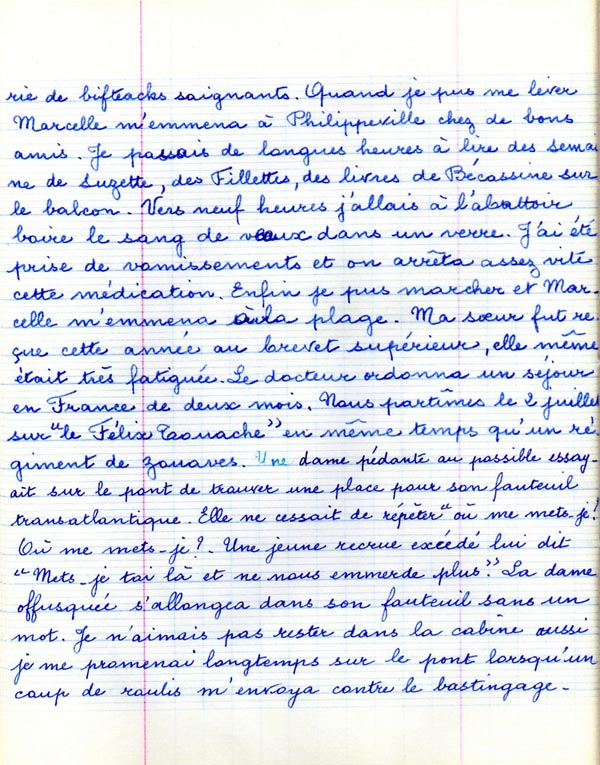 rie de bifteacks saignants. Quand je pus me lever
Marcelle m'emmena à Philippeville chez de bons
amis. Je passais de longues heures à lire des semai
ne de Suzette, des Fillettes, des livres de Bécassine sur
le balcon. Vers neuf heures j'allais à l'abattoir
boire le sang de veaux dans un verre. J'ai été
prise de vomissements et on arrêta assez vite
cette médication. Enfin je pus marcher et Mar-
celle m'emmena à la plage. Ma sœur fut re-
çue cette année au brevet supérieur, elle même
était très fatiguée. Le docteur ordonna un séjour
en France de deux mois. Nous partîmes le 2 juillet
sur "le Félix Touache" en même temps qu'un ré-
giment de zouaves. Une dame pédante au possible essay-
ait sur le pont de trouver une place pour son fauteuil
transatlantique. Elle ne cessait de répéter "où me mets-je!
Où me mets-je?. Une jeune recrue excédé lui dit
"Mets-je toi là et ne nous emmerde plus". La dame
offusquée s'allongea dans son fauteuil sans un
mot. Je n'aimais pas rester dans la cabine aussi
je me promenai longtemps sur le pont lorsqu'un
coup de roulis m'envoya contre le bastingage.